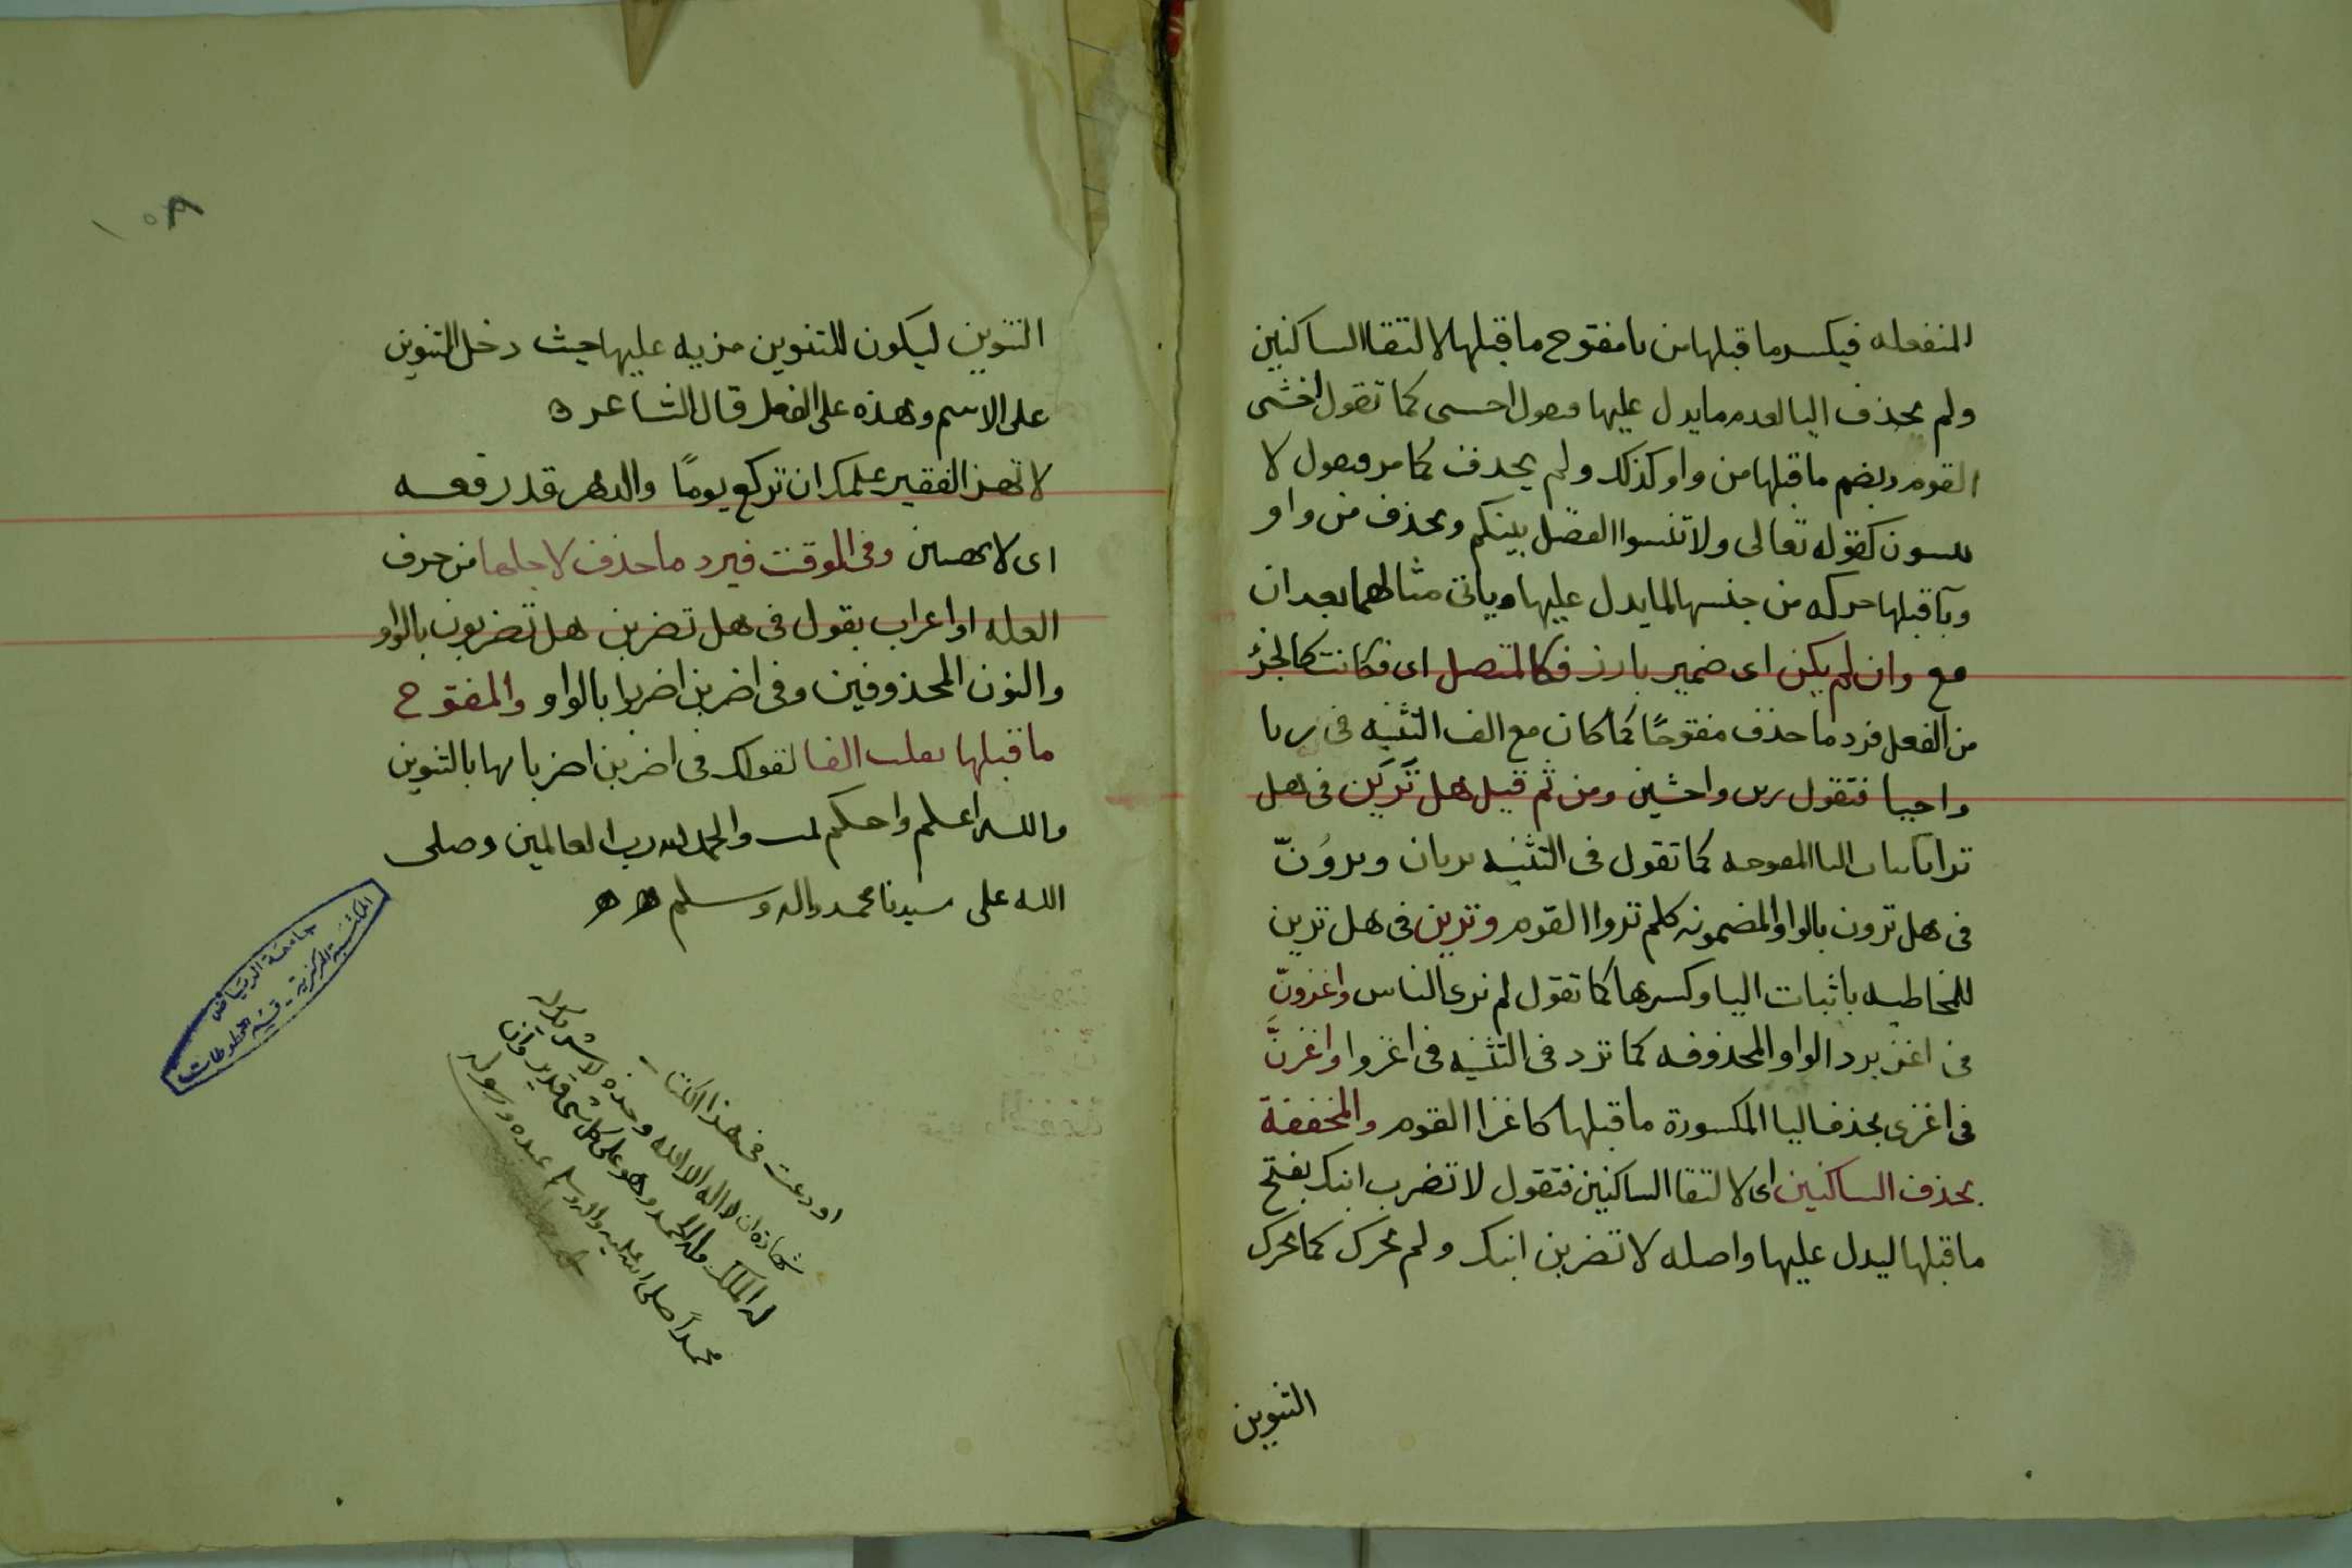 المنفصله فيكسر ما قبلها من يا مفتوح ما قبلها لالتقا الساكنين
ولم يحذف اليا لعدم ما يدل عليها كما تقول اخشى
القوم ويضم ما قبلها من واو كذلك ولم يحذف كما مر لا
كقوله تعالى ولا تنسوا الفضل بينكم ويحذف من واو
ويآ قبلها حركه من جنسها لما يدل عليها وياتى مثالهما بعد ان
مع وان لم يكن اى ضمير بارز فكالمتصل اى فكانت كالجزؤ
من الفعل فرد ما حذف مفتوحًا كما كان مع الف التثنيه فى ريا
فتقول رين واخشين ومن ثم قيل هل تَرَيَن فى هل
ترا كما تقول فى التثنيه تريان وتروُنّ
فى هل ترون بالواو المضمومه كلم تروا القوم وترين فى هل ترين
للمخاطبه باثبات اليا وكسرها كما تقول لم ترى الناس واغزونّ
فى اغز برد الواو المحذوفه كما ترد فى التثنيه فى اغزوا واغزنَّ
فى اغزى بحذف اليا المكسورة ما قبلها كاغزا القوم والمخففة
بحذف الساكنين اى لالتقا الساكنين فتقول لا تضرب ابنك بفتح
ما قبلها ليدل عليها واصله لا تضربن ابنك ولم تحرك كما تحرك
التنوين
١٥٨
التنوين ليكون للتنوين مزيه عليها حيث دخل التنوين
على الاسم وهذه على الفعل قال الشاعر ه
لا تهن الفقير علك ان تركع يومًا والدهر قد رفعه
اى لا تهينن وفى الوقف فيرد ما حذف لاجلها من حرف
العله او اعراب يقول فى هل تضربن هل تضربون بالواو
والنون المحذوفين وفى اضربن اضربوا بالواو والمفتوح
ما قبلها تقلب الفا لقولك فى اضربن اضربا بالتنوين
والله اعلم واحكم تمت والحمد لله رب العالمين وصلى
الله على سيدنا محمد واله وسلم
اودعت فى هذا الكتاب
شهادة ان لا اله الا الله وحده لا شريك له
له الملك وله الحمد وهو على كل شى قدير وان
محمداً صلى الله عليه واله وسلم عبده ورسوله
جامعة الرياض
المكتبة المركزية - قسم المخطوطات